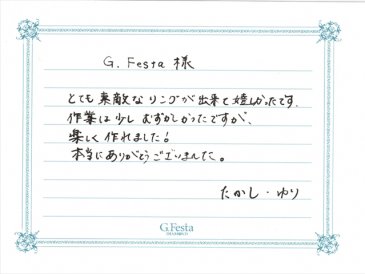 G. Festa 様
とても素敵なリングが出来て嬉しかったです.
作業は少しむずかしかったですが、
楽しく作れました!
本当にありがとうございました。
たかし・ゆり
G.Festa